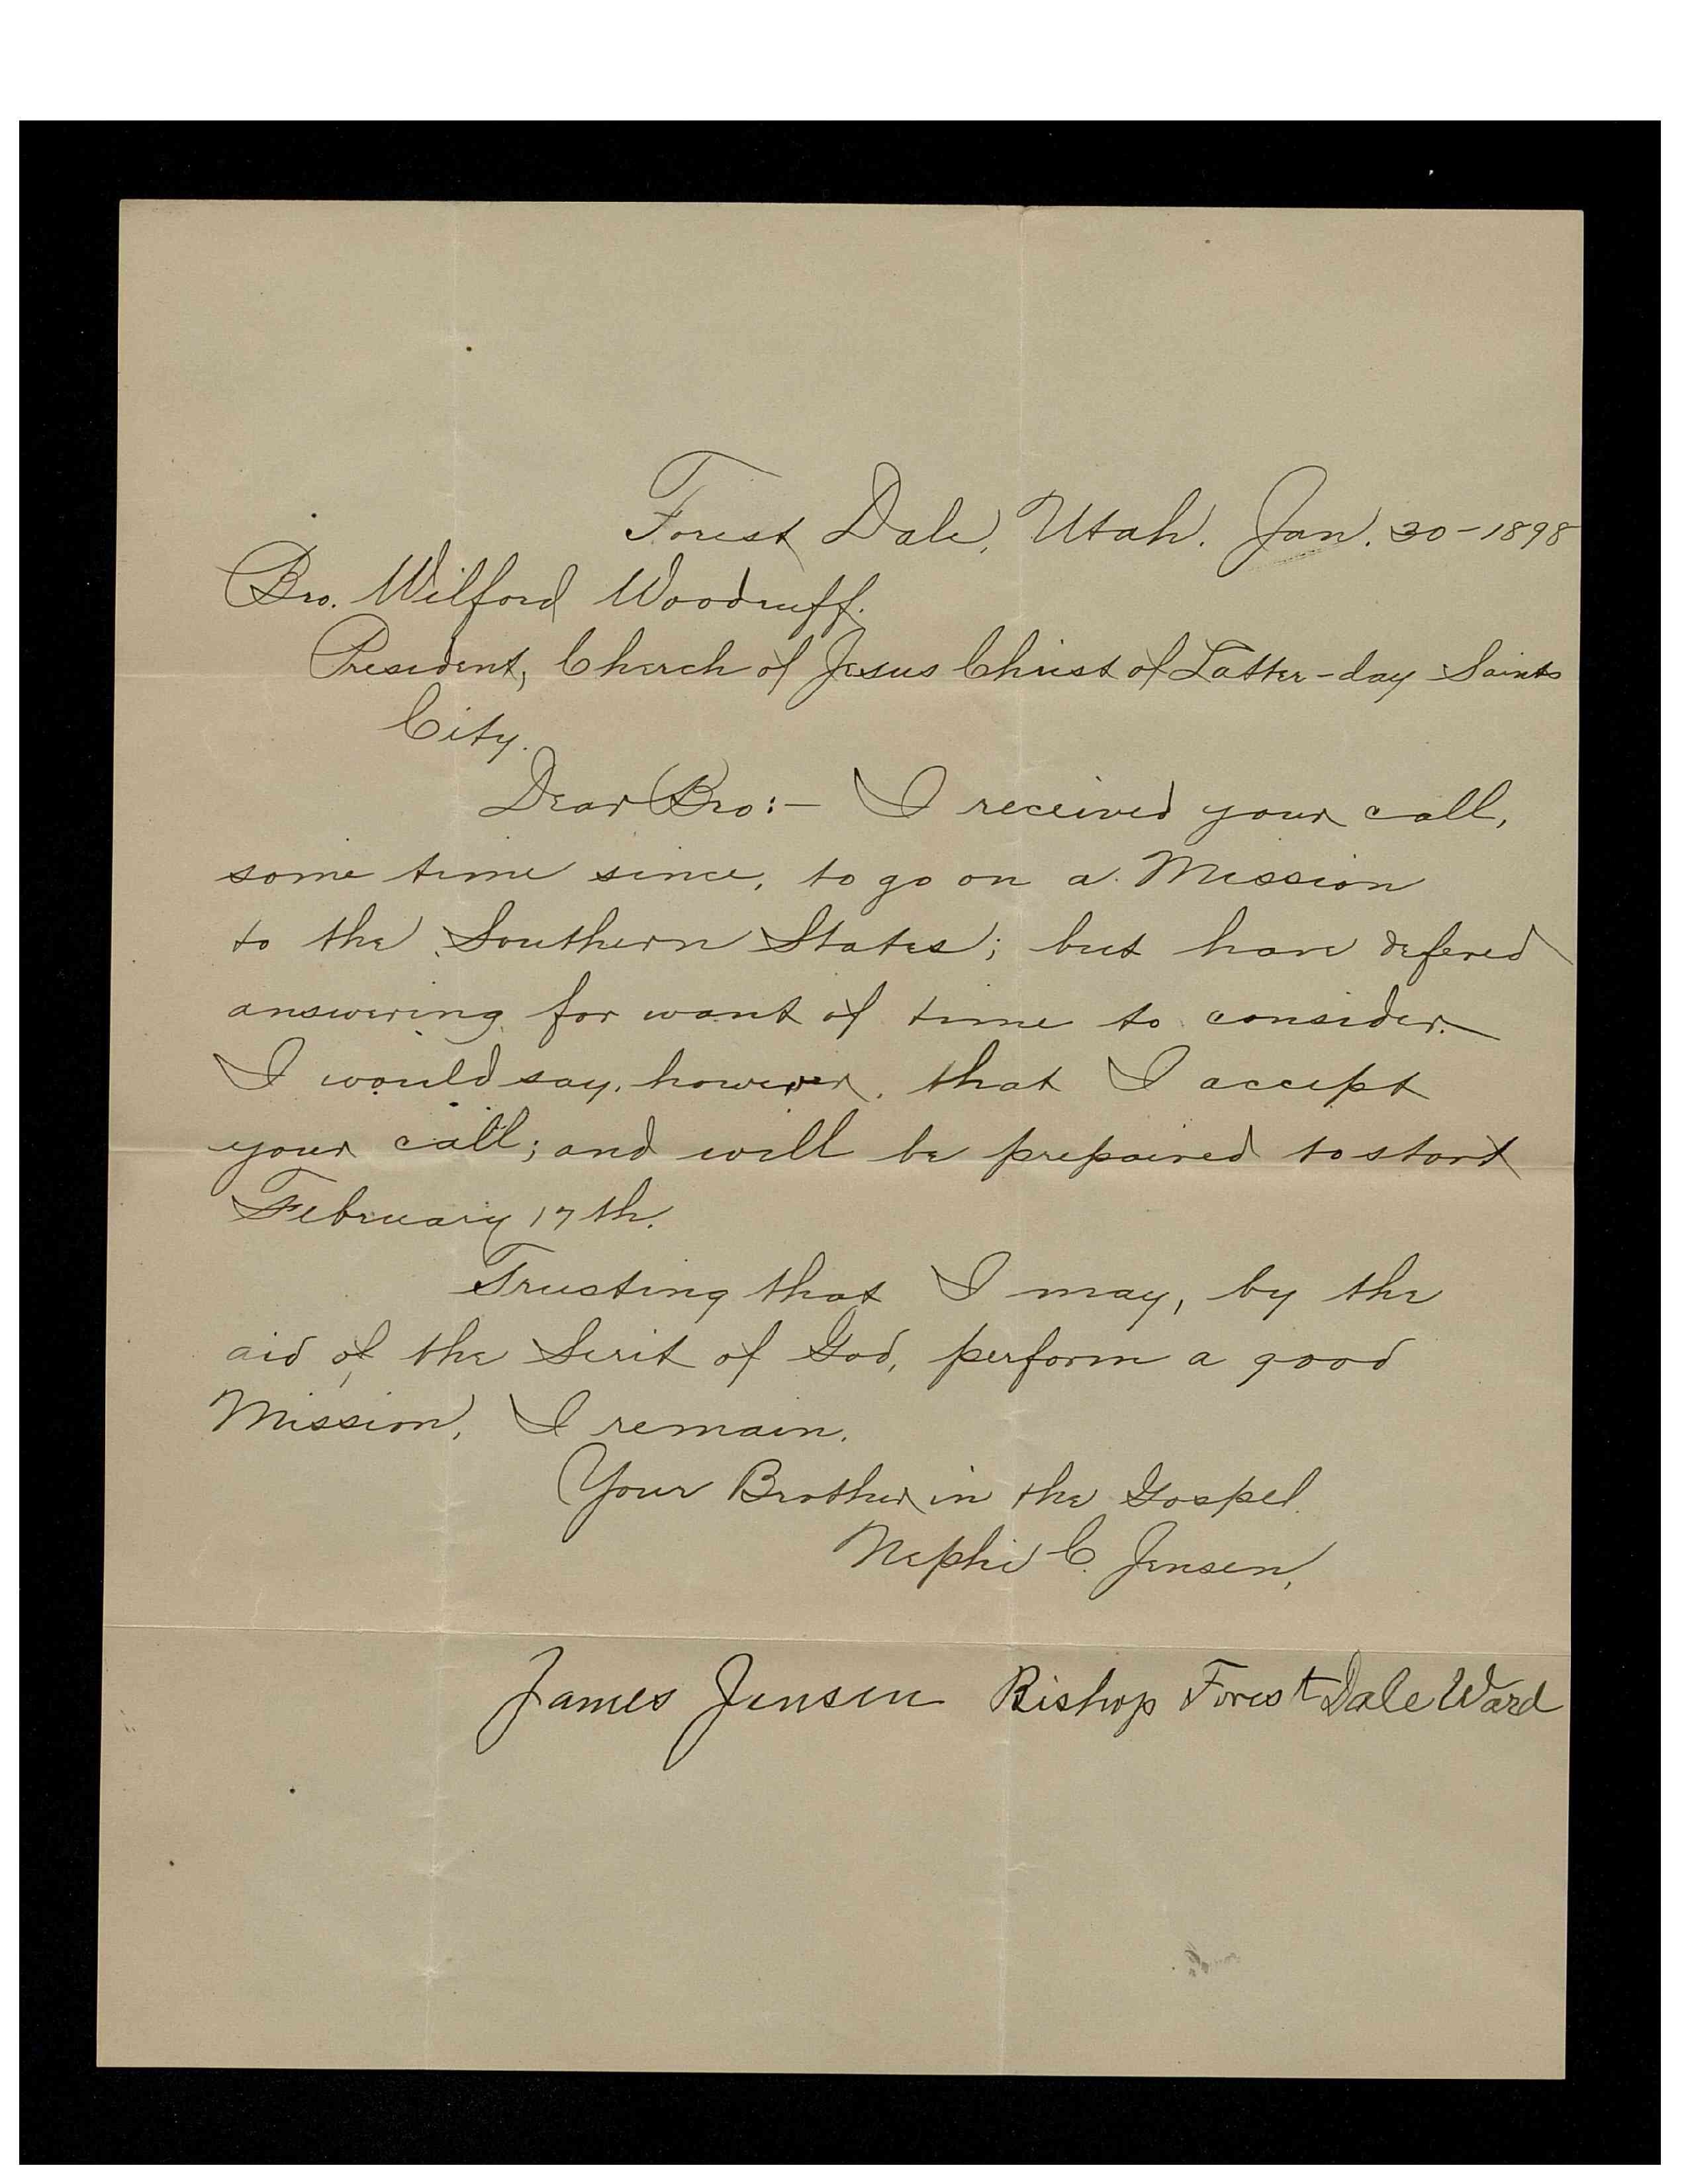 Forest Dale, Utah. Jan. 30-1898
Bro. Wilford Woodruff.
President, Church of Jesus Christ of Latter-day Saints
City.
Dear Bro:- I received your call,
some time since, to go on a Mission
to the Southern States; but have defered
answering for want of time to consider.
I would say, however, that I accept
your call; and will be prepaired to start
February 17th.
Trusting that I may, by the
aid of the Serit of God, perform a good
Mission, I remain.
Your Brother in the Gospel.
Nephi C. Jensen,
James Jensen Bishop Forest Dale Ward